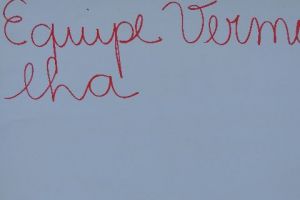 Equipe Verme
lha